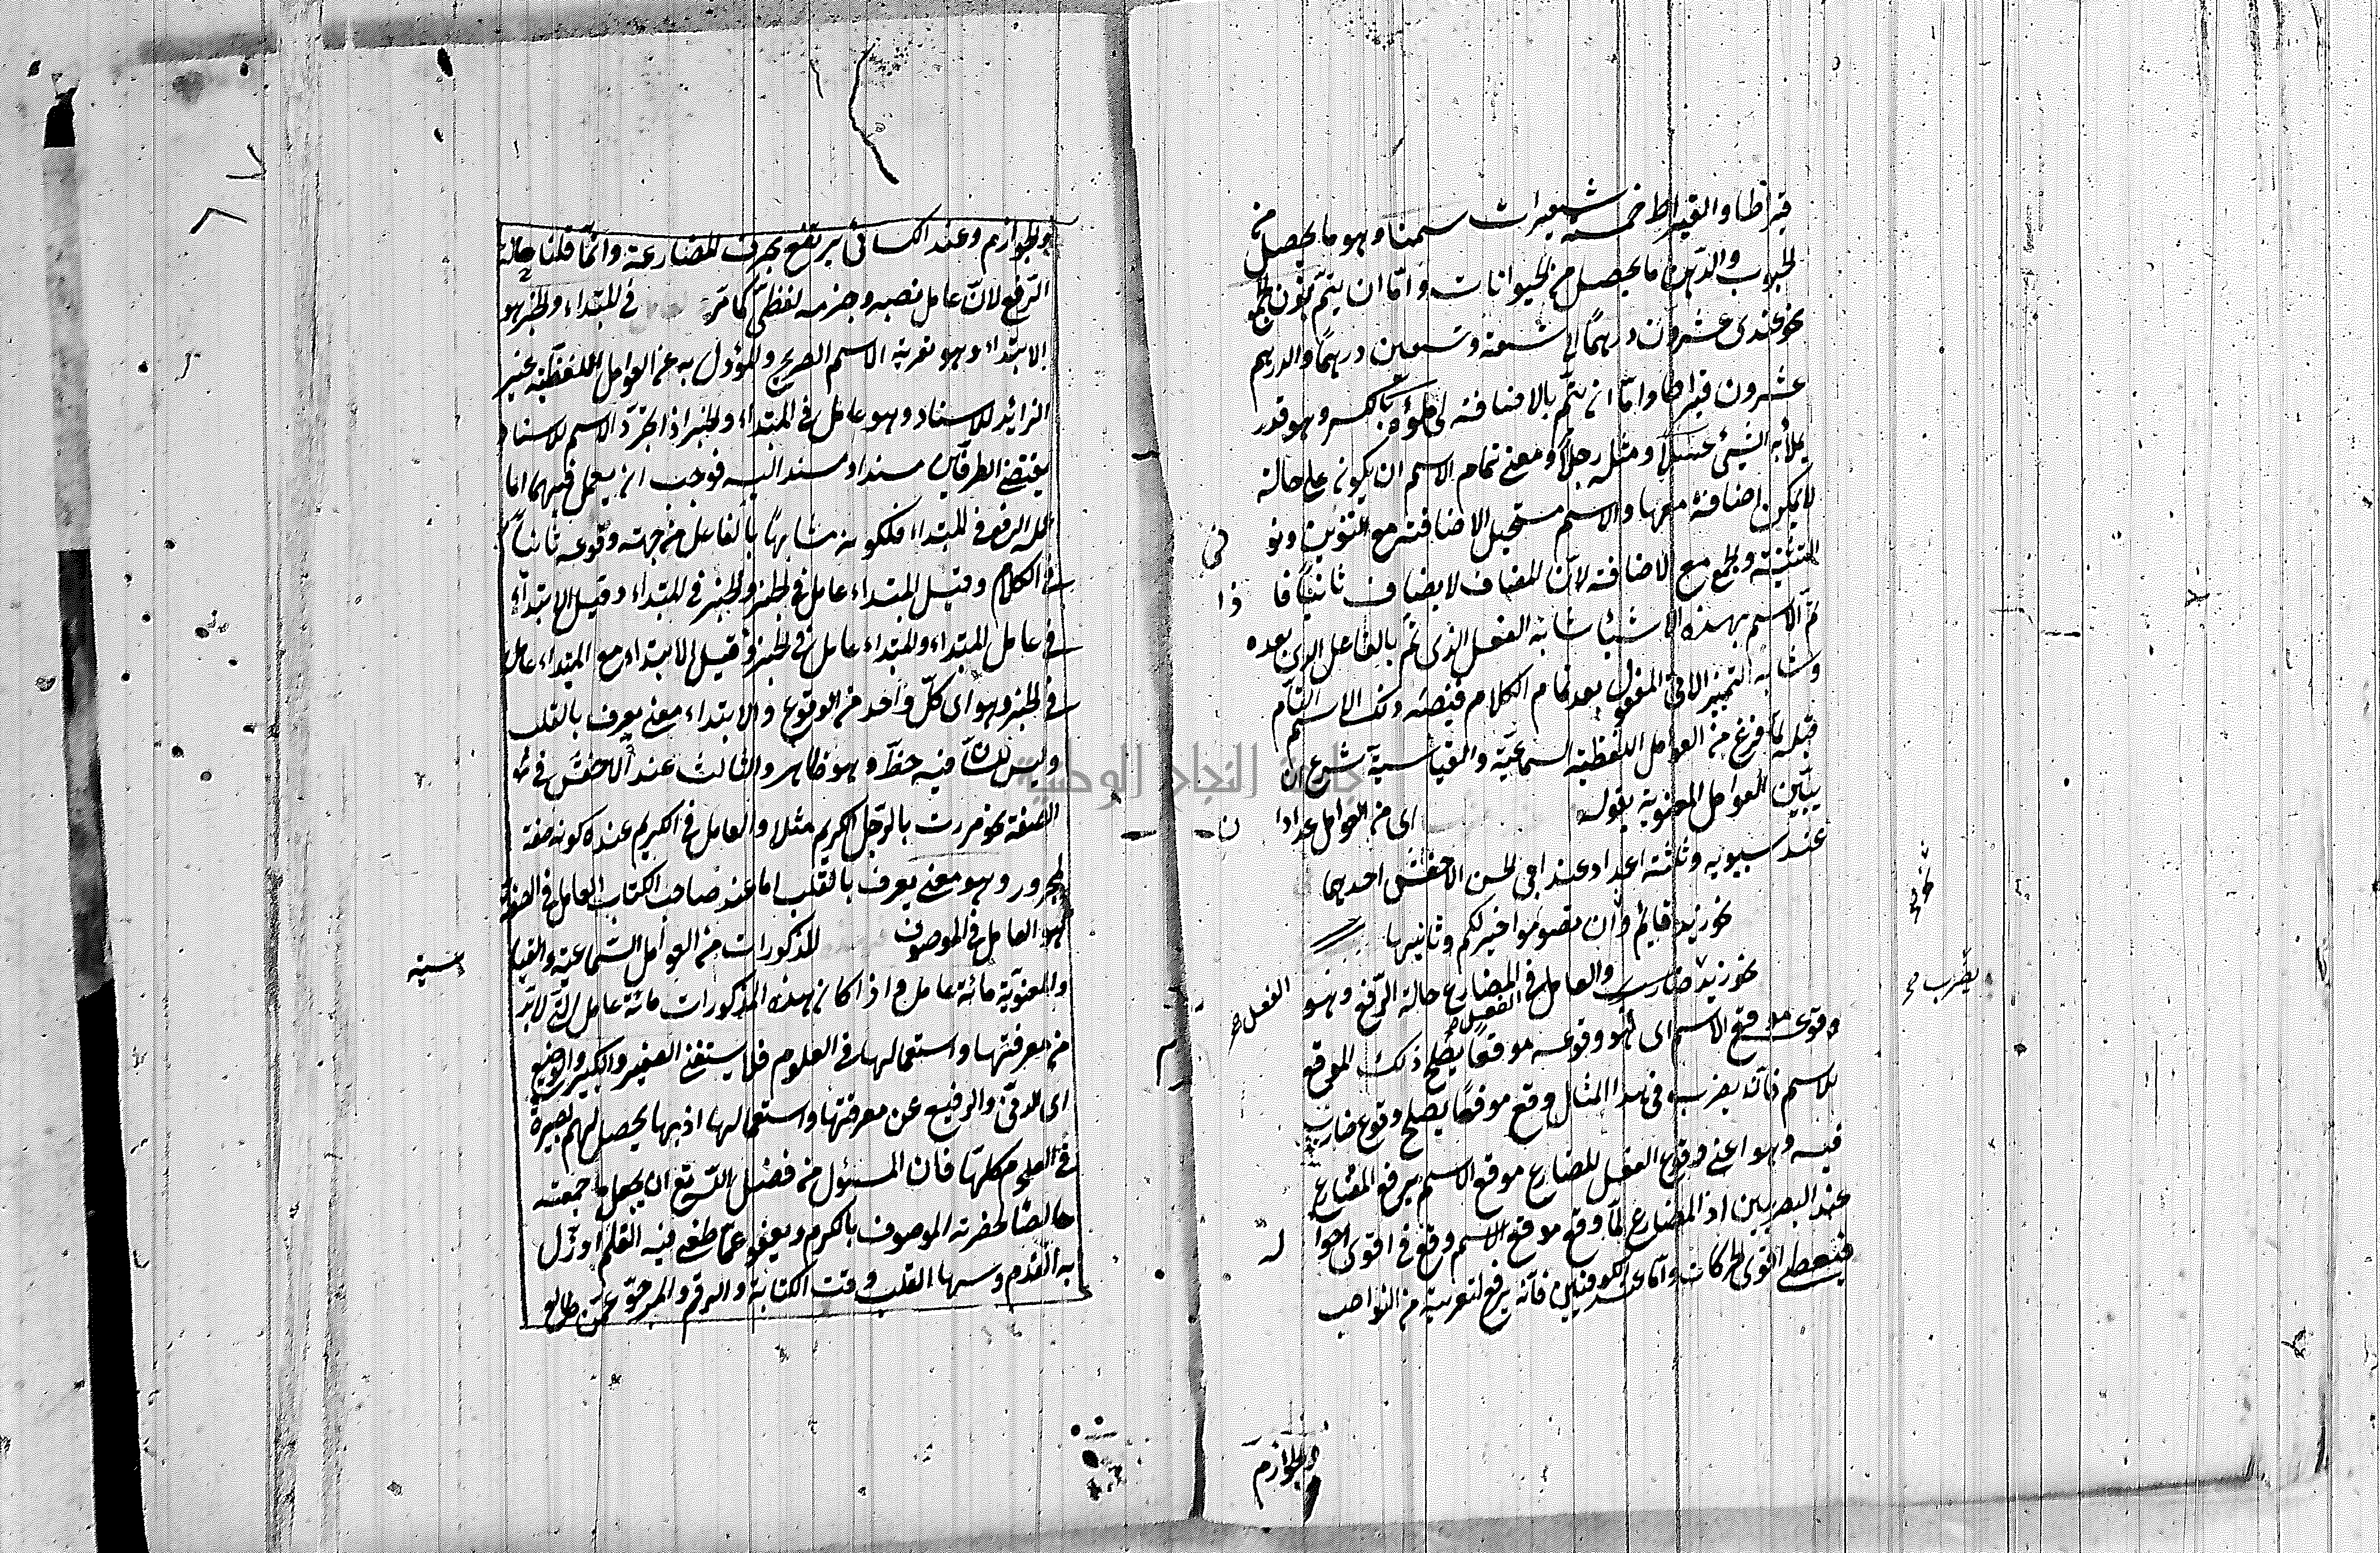 قيراطا والقيراط خمسة شعيرات سمنا وهو ما يحصل من
الحبوب والدهن ما يحصل من الحيوانات واما ان يتم بنون الجمع
نحو عندى عشرون درهمًا الى تسعة وتسعين درهمًا والدرهم
عشرون قيراطا واما ان يتم بالاضافة الى ملؤه بالكسر وهو قدر
يملأ به الشيئ عسلًا ومثله رجلًا ومعنى تمام الاسم ان يكون على حالة
لا يمكن اضافته معها والاسم مستحيل الاضافة مع التنوين ونو نى
التثنية والجمع مع الاضافة لان المضاف لا يضاف ثانيًا فا ذا
تم الاسم بهذه الاشياء شابه الفعل الذى تم بالفاعل الذى بعده
وشابه التمييز الاتى المفعول بعد تمام الكلام فينصبه ذلك الاسم التام
قبله لما فرغ من العوامل اللفظية السماعية والقياسية شرع ان
يبين العوامل المعنوية بقوله اى من العوامل عدادا ن
عند سيبويه وثلثة اعداد عند ابى الحسن الاخفش احدهما
نحو زيد قايم وان تصوموا خير لكم وثانيها
نحو زيد ضارب والعامل فى المضارع حالة الرفع وهو
وقوع موقع الاسم اى الفعل هو وقوعه موقعًا يصلح ذلك الموقع
للاسم فانه يضرب فى هذا المثال وقع موقعًا يصلح وقوع ضارب
فيه وهو اعنى وقوع الفعل المضارع موقع الاسم يرفع المضارع
عند البصريين اذ المضارع لما وقع موقع الاسم وقع فى اقوى احوا له
فيعطى اقوى الحركات واما عند الكوفيين فانه يرفع لتعريته من النواصب
والجوازم
نحو
يضرب
الفعل
والجوازم وعند الكسائى يرتفع بحرف المضارعة وانما قلنا حالة
الرفع لان عامل نصبه وجزمه لفظى كما مر فى المبتداء والخبر هو
الابتداء وهو تعرية الاسم الصريح والمؤول به عن العوامل اللفظية غير
الزائد للاسناد وهو عامل فى المبتداء والخبر اذ تجرد الاسم للاسناد
يقتضى الطرفين مسندا ومسندا اليه فوجب ان يعمل فيهما اما
عمله الرفع فى المبتداء فلكونه مشابهًا بالفاعل من جهة وقوعه ثانيًا
فى الكلام وقيل المبتداء عامل فى الخبر والخبر فى المبتداء وقيل الابتداء
فى عامل المبتداء والمبتداء عامل فى الخبر وقيل الابتداء مع المبتداء عامل
فى الخبر وهو اى كل واحد من الوقوع والابتداء معنى يعرف بالقلب
وليس للسان فيه حظ وهو ظاهر والثالث عند الاخفش فى
الصفة نحو مررت بالرجل الكريم مثلا والعامل فى الكريم عنده كونه صفة
لمجرور وهو معنى يعرف بالقلب اما عند صاحب الكتاب العامل فى الصفة
هو العامل فى الموصوف المذكورات من العوامل السماعية والقيا سية
والمعنوية مائة عامل واذا كان هذه المذكورات مائة عامل التى لا بد
من معرفتها واستعمالها فى العلوم فلا يستغنى الصغير والكبير والوضيع
اى الدنى والرفيع عن معرفتها واستعمالها اذ بها يحصل لهم بصيرة
فى العلوم كلها فان المسئول من فضل ان يجعل ما جمعته
خالصا لحضرته الموصوف بالكرم ويعفو عما طغى فيه القلم او زل
به القدم وسها القلب وقت الكتابة والرقم والمرجو عمن طالع